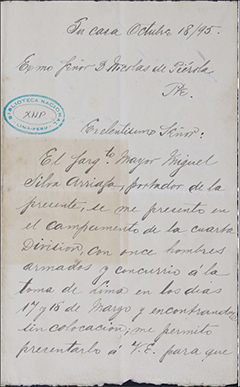 Su casa Octubre 18/95.
Exmo Señor D. Nicolas de Piérola
Pte.
BIBLIOTECA NACIONAL
XHP
LIMA-PERU
Exelentisimo Señor:
El Sargto Mayor Miguel
Silva Arriaga, portador de la
presente, se me presento en
el campamento de la cuarta
Division con once hombres
armados y concurrio á la
toma de Lima en los dias
17 y 18 de Marzo y encontrandose
sin colocacion, me permito
presentarlo á V.E. para que